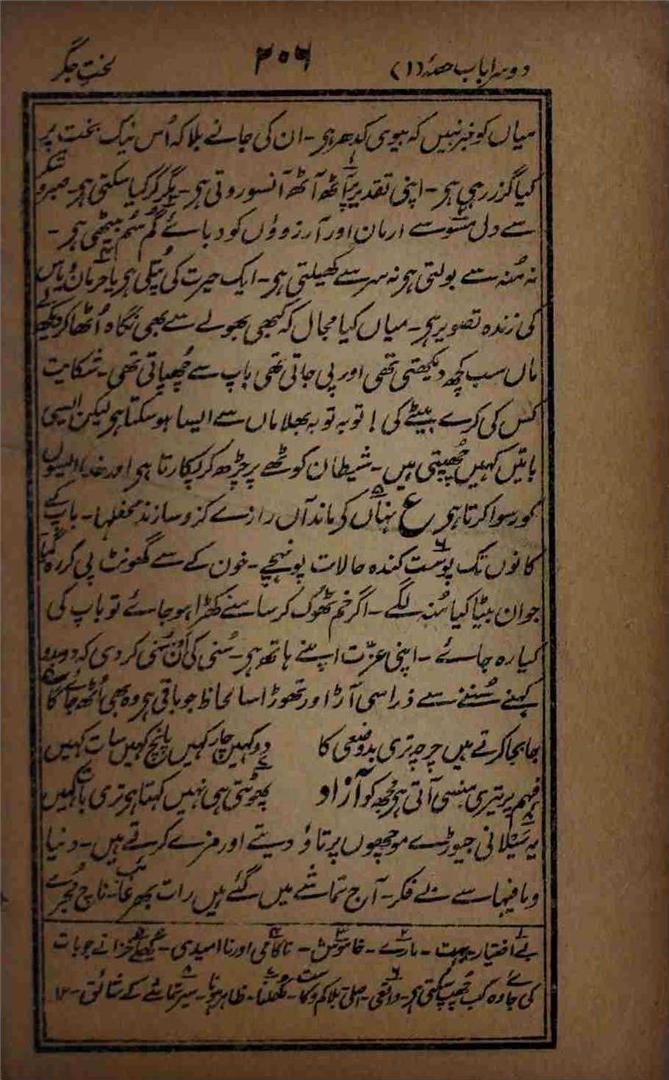 دوسرا باب حصۂ (۱) ۲۰۶ لختِ جگر
میاں کو خبر نہیں کہ بیوی کدھر ہی۔ ان کی جانے بلا کہ اُس نیک بخت پر
کیا گزر رہی ہی۔ اپنی تقدیر پر آٹھ آٹھ آنسو روتی ہی۔ پر کر کیا سکتی ہی۔ صبر و شکر
سے دل مسوسے ارمان اور آرزوؤں کو دبائے گُم سُم بیٹھی ہی۔
نہ مُنہ سے بولتی ہی نہ سر سے کھیلتی ہی۔ ایک حیرت کی پُتلی ہی یا حرمان و یاس
کی زندہ تصویر ہی۔ میاں کیا مجال کہ کبھی بھولے سے بھی نگاہ اُٹھا کر دیکھے
ماں سب کچھ دیکھتی تھی اور پی جاتی تھی باپ سے چُھپاتی تھی۔ شکایت
کس کی کرے بیٹے کی! توبہ توبہ بھلا ماں سے ایسا ہو سکتا ہی لیکن ایسی
باتیں کہیں چُھپتی ہیں۔ شیطان کوٹھے پر چڑھ کر پکارتا ہی اور خدا ایسوں
کو رسوا کرتا ہی ع نہاں کی ماند آں رازے کزو سازند محفلہا۔ باپ کے
کانوں تک پوست کندہ حالات پونہچے۔ خون کے سے گھونٹ پی کر رہ گیا
جوان بیٹا کیا مُنہ لگے۔ اگر خم ٹھوک کر سامنے کھڑا ہو جائے تو باپ کی
کیا رہ جائے۔ اپنی عزّت اپنے ہاتھ ہی۔ سُنی کی اَن سُنی کر دی کہ دوبدو
کہنے سُننے سے ذرا سی آڑ اور تھوڑا سا لحاظ جو باقی ہی وہ بھی اُٹھ جائے گا
جابجا کرتے ہیں چرچہ تری بدوضعی کا دو کہیں چار کہیں پانچ کہیں سات کہیں
فہم پر تیری ہنسی آتی ہی مجھ کو آزاد پھوٹتی ہی نہیں کہتا ہی تری بات کہیں
یہ سَیلانی جیوڑے موچھوں پر تاؤ دیتے اور مزے کرتے ہیں۔ دنیا
و مافیہا سے بے فکر۔ آج تماشے میں گئے ہیں رات بھر غائب ناچ مُجرے
بے اختیار۔ بہت۔ مارے۔ خاموش۔ ناکامی اور نا امیدی۔ کھلے خزانے جو بات
کی جاوے وہ کب چھپ سکتی ہی۔ واقعی۔ اصلی بلا کم و کاست۔ نکلنا۔ ظاہر ہونا۔ سیر تماشے کے شائق۔ ۱۲